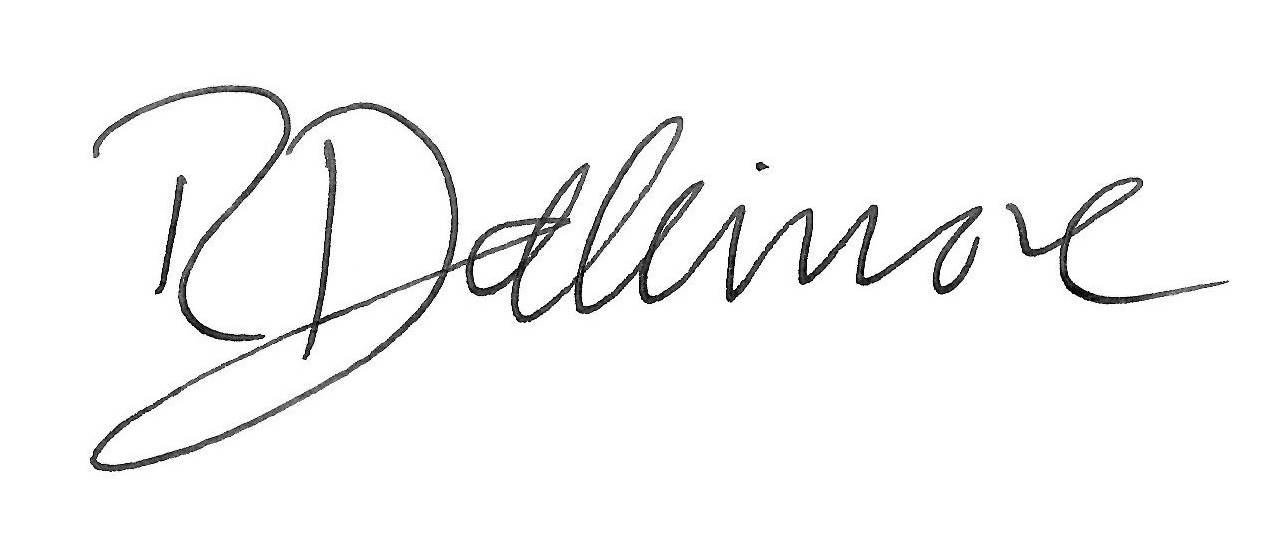 R Dallimore